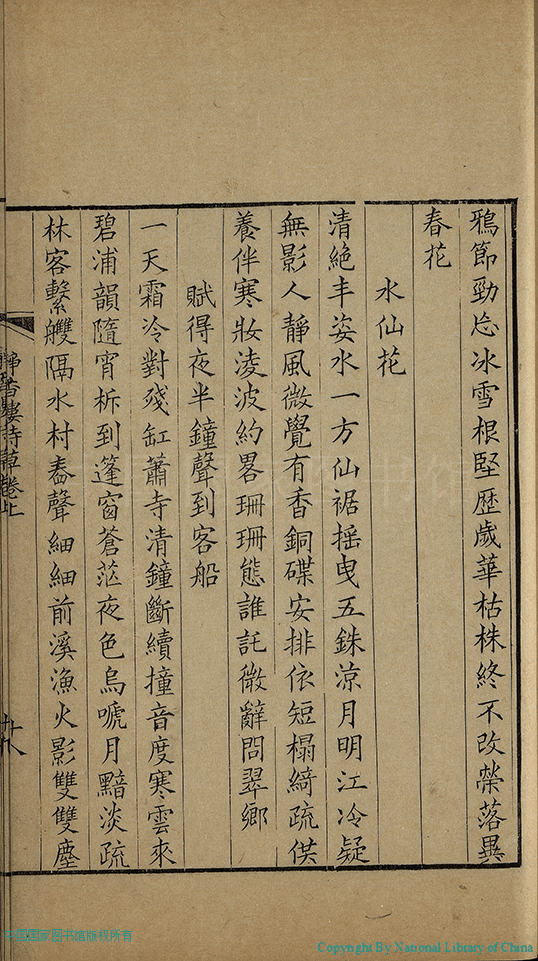 鴉節勁忘冰雪根堅歴歲華枯株終不改榮落異
春花
水仙花
清絶丰姿水一方仙裾揺曳五銖涼月明江冷疑
無影人靜風微覺有香銅碟安排依短榻綺疏供
養伴寒妝淩波約畧珊珊態誰託微辭問翠鄉
賦得夜半鐘聲到客船
一天霜冷對殘缸蕭寺清鐘斷續撞音度寒雲來
碧浦韻隨宵柝到篷窗蒼茫夜色烏嗁月黯淡疏
林客繫艭隔水村舂聲細細前溪漁火影雙雙塵
靜香樓詩草卷上
十八
中国国家图书馆版权所有
Copyright By National Library of China